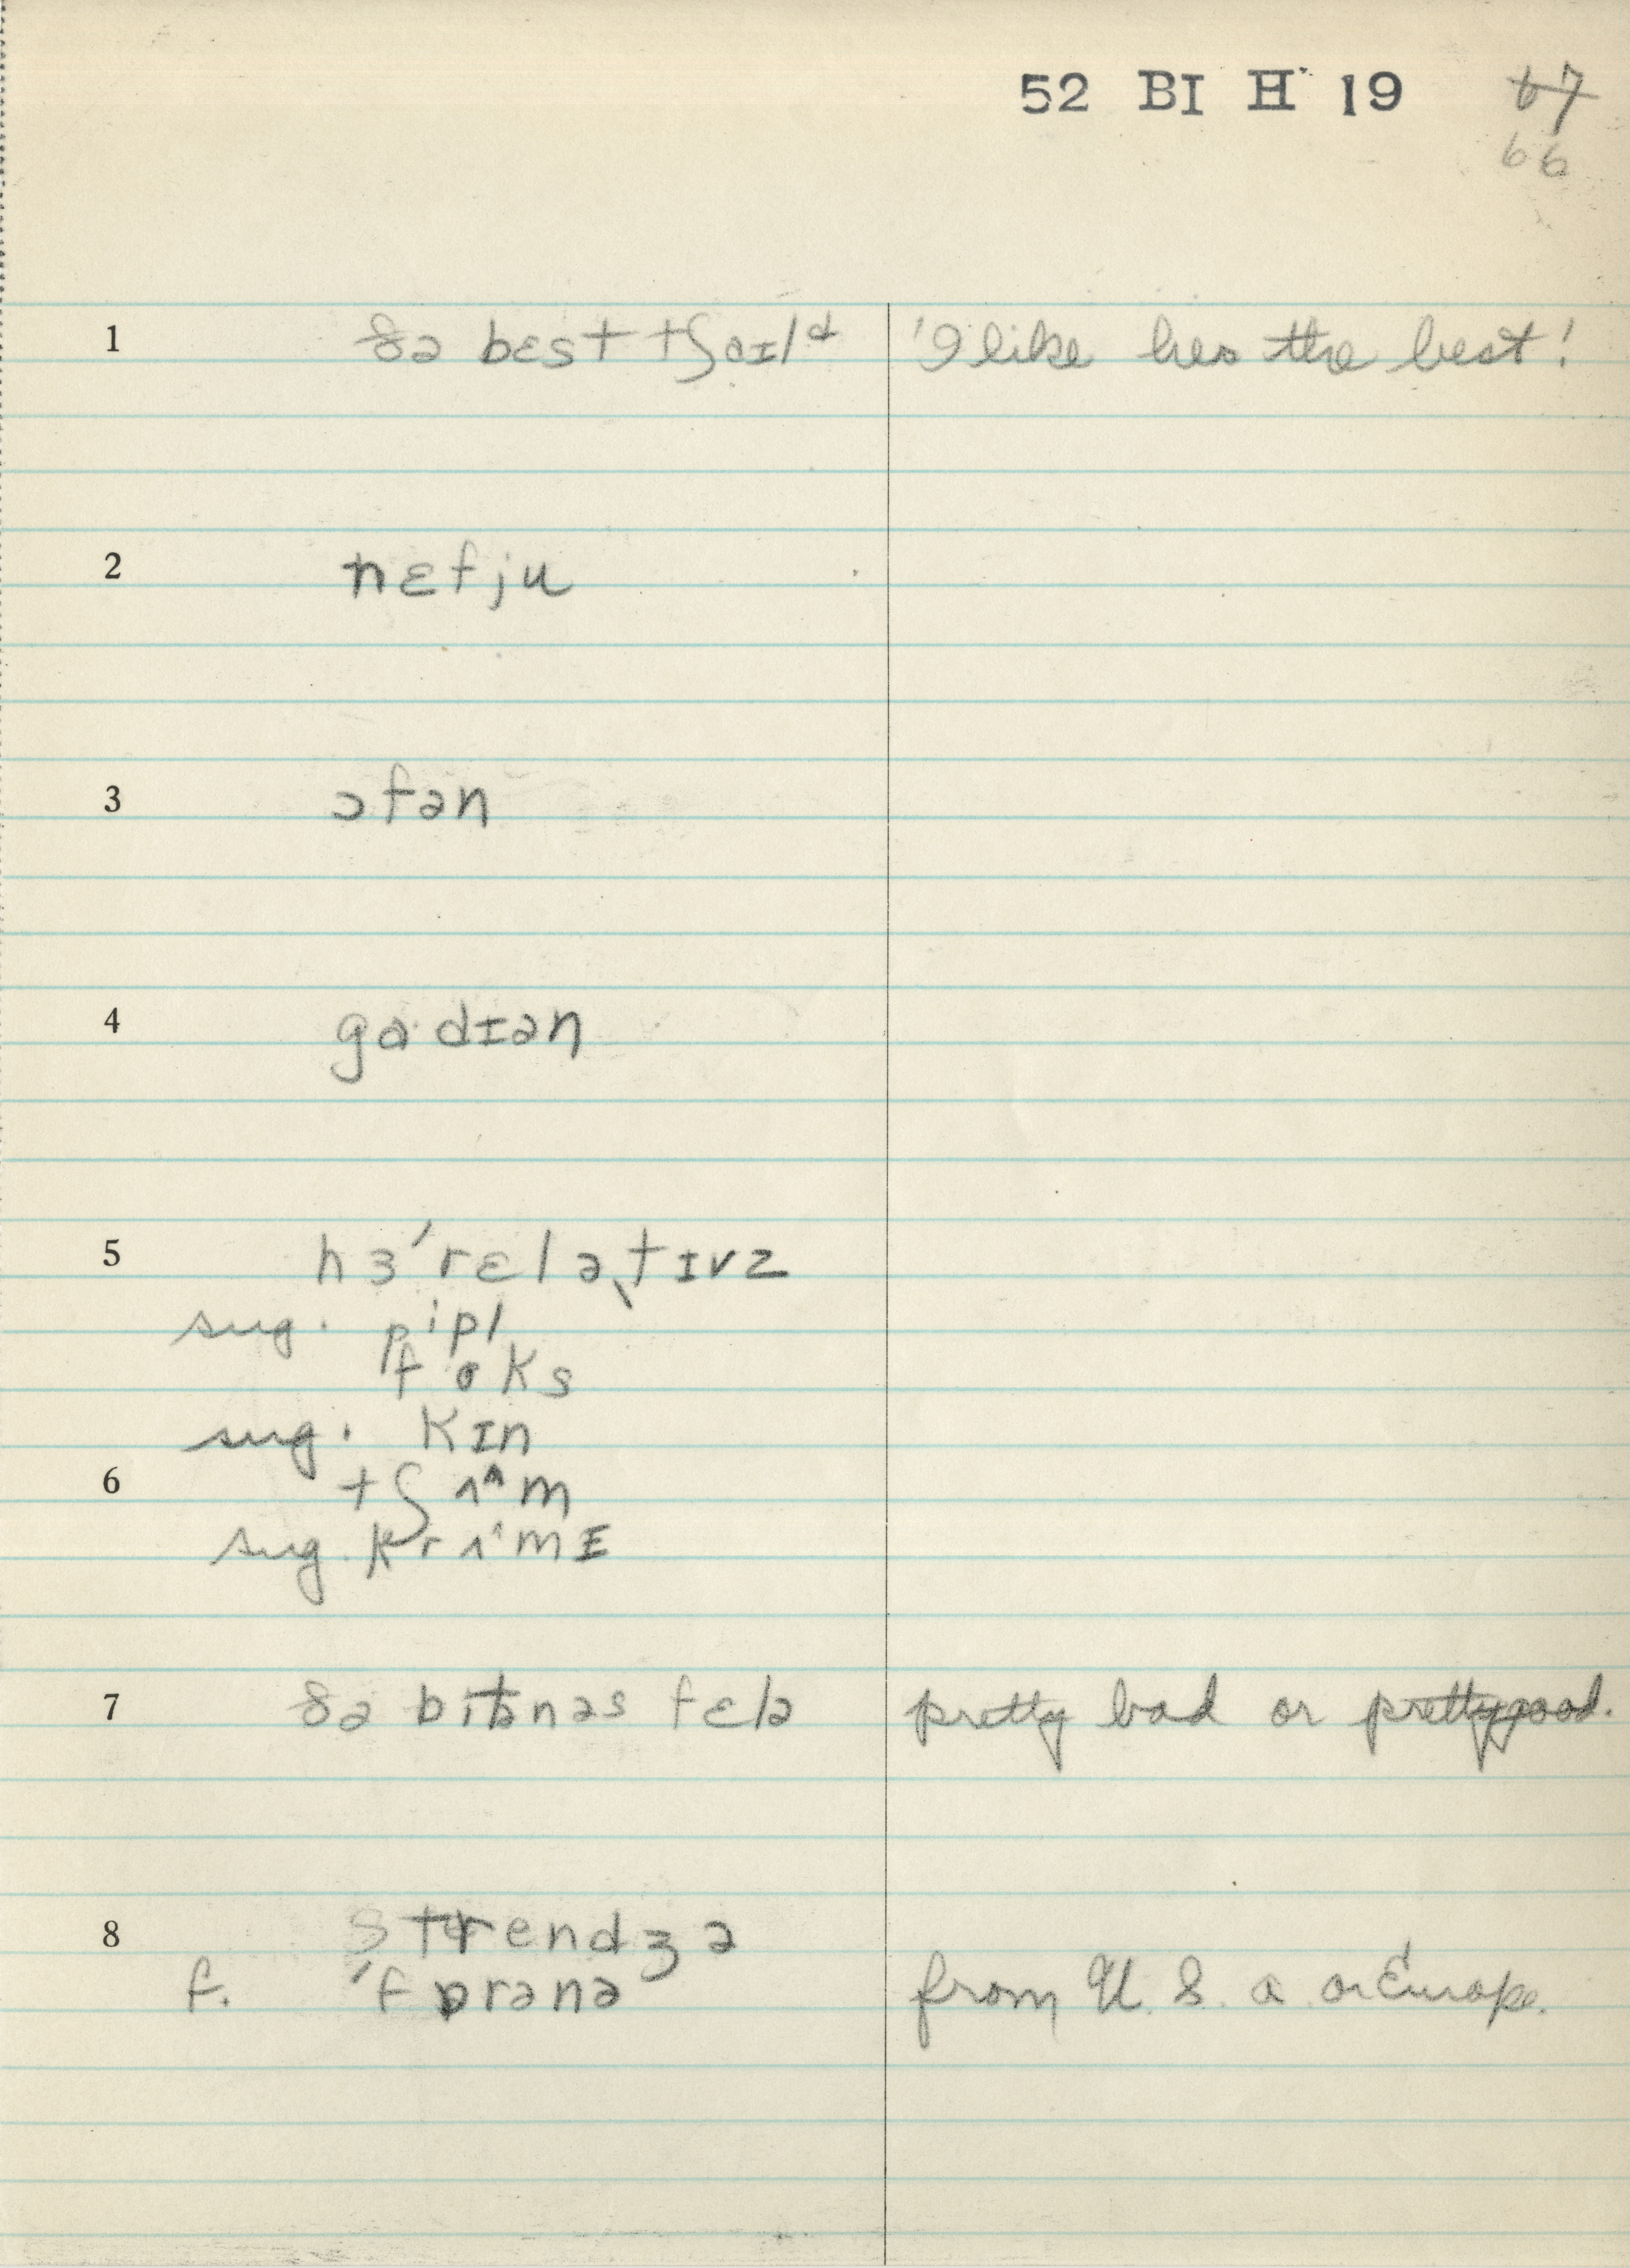 52 BI H 19 67
66
1 ðə bɛst tʃaɪld 'I like her the best!
2 nɛfju
3 ɔfən
4 ga·dɪən
5 hɜ 'rɛlə̗tɪvz
sug. pipl
foks
sug. kɪn
6 tʃɪʌm
sug.
7 ðə fɛlə pretty bad or pretty good.
8 strendʒə
f. 'fɒrənə from U. S. a or Europe.